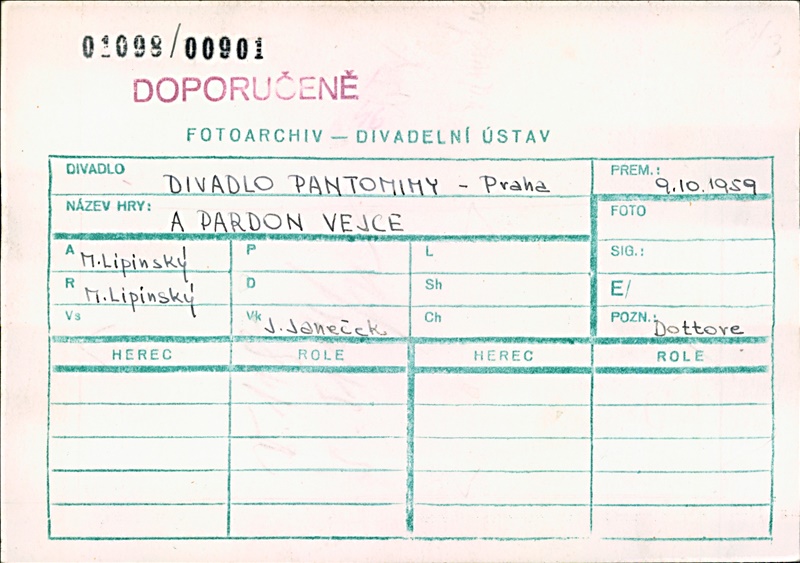 01098/00901
DOPORUČENĚ
FOTOARCHIV — DIVADELNÍ ÚSTAV
DIVADLO DIVADLO PANTOMIMY - Praha
PREM.: 9.10.1959
NÁZEV HRY: A PARDON VEJCE
FOTO
A M.Lipinský P L SIG.:
R M.Lipinský D Sh E/
Vs Vk J.Janeček Ch POZN.: Dottore
HEREC ROLE HEREC ROLE